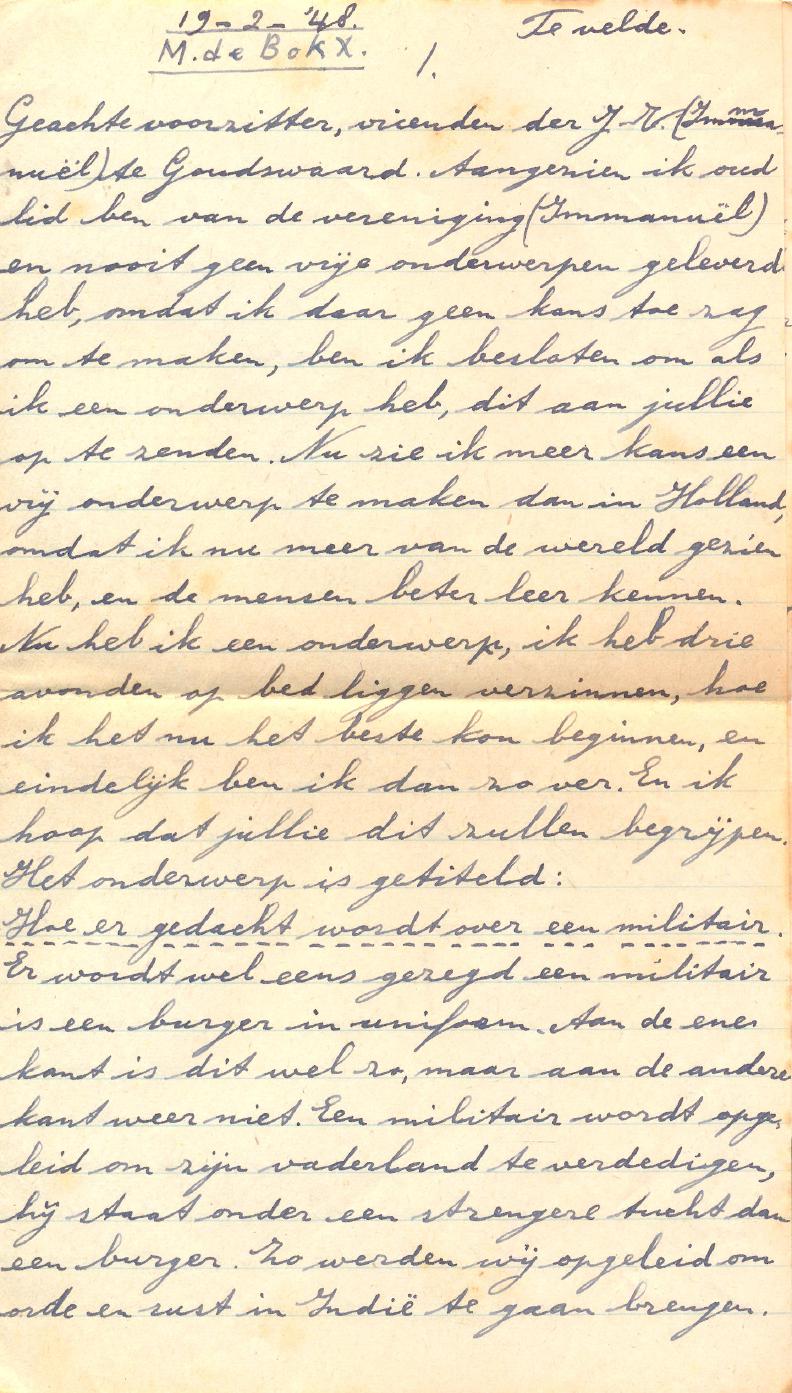 19-2-'48.
Te velde.
M. de Bokx.
1.
Geachte voorzitter, vrienden der J.V. (Imma-
nuël) te Goudswaard. Aangezien ik oud
lid ben van de vereniging (Immanuël)
en nooit geen vrije onderwerpen geleverd
heb, omdat ik daar geen kans toe zag
om te maken, ben ik besloten om als
ik een onderwerp heb, dit aan jullie
op te zenden. Nu zie ik meer kans een
vrij onderwerp te maken dan in Holland,
omdat ik nu meer van de wereld gezien
heb, en de mensen beter leer kennen.
Nu heb ik een onderwerp, ik heb drie
avonden op bed liggen verzinnen, hoe
ik het nu het beste kon beginnen, en
eindelijk ben ik dan zo ver. En ik
hoop dat jullie dit zullen begrijpen.
Het onderwerp is getiteld:
Hoe er gedacht wordt over een militair.
Er wordt wel eens gezegd een militair
is een burger in uniform. Aan de ene
kant is dit wel zo, maar aan de andere
kant weer niet. Een militair wordt opge-
leid om zijn vaderland te verdedigen,
hij staat onder een strengere tucht dan
een burger. Zo werden wij opgeleid om
orde en rust in Indië te gaan brengen.